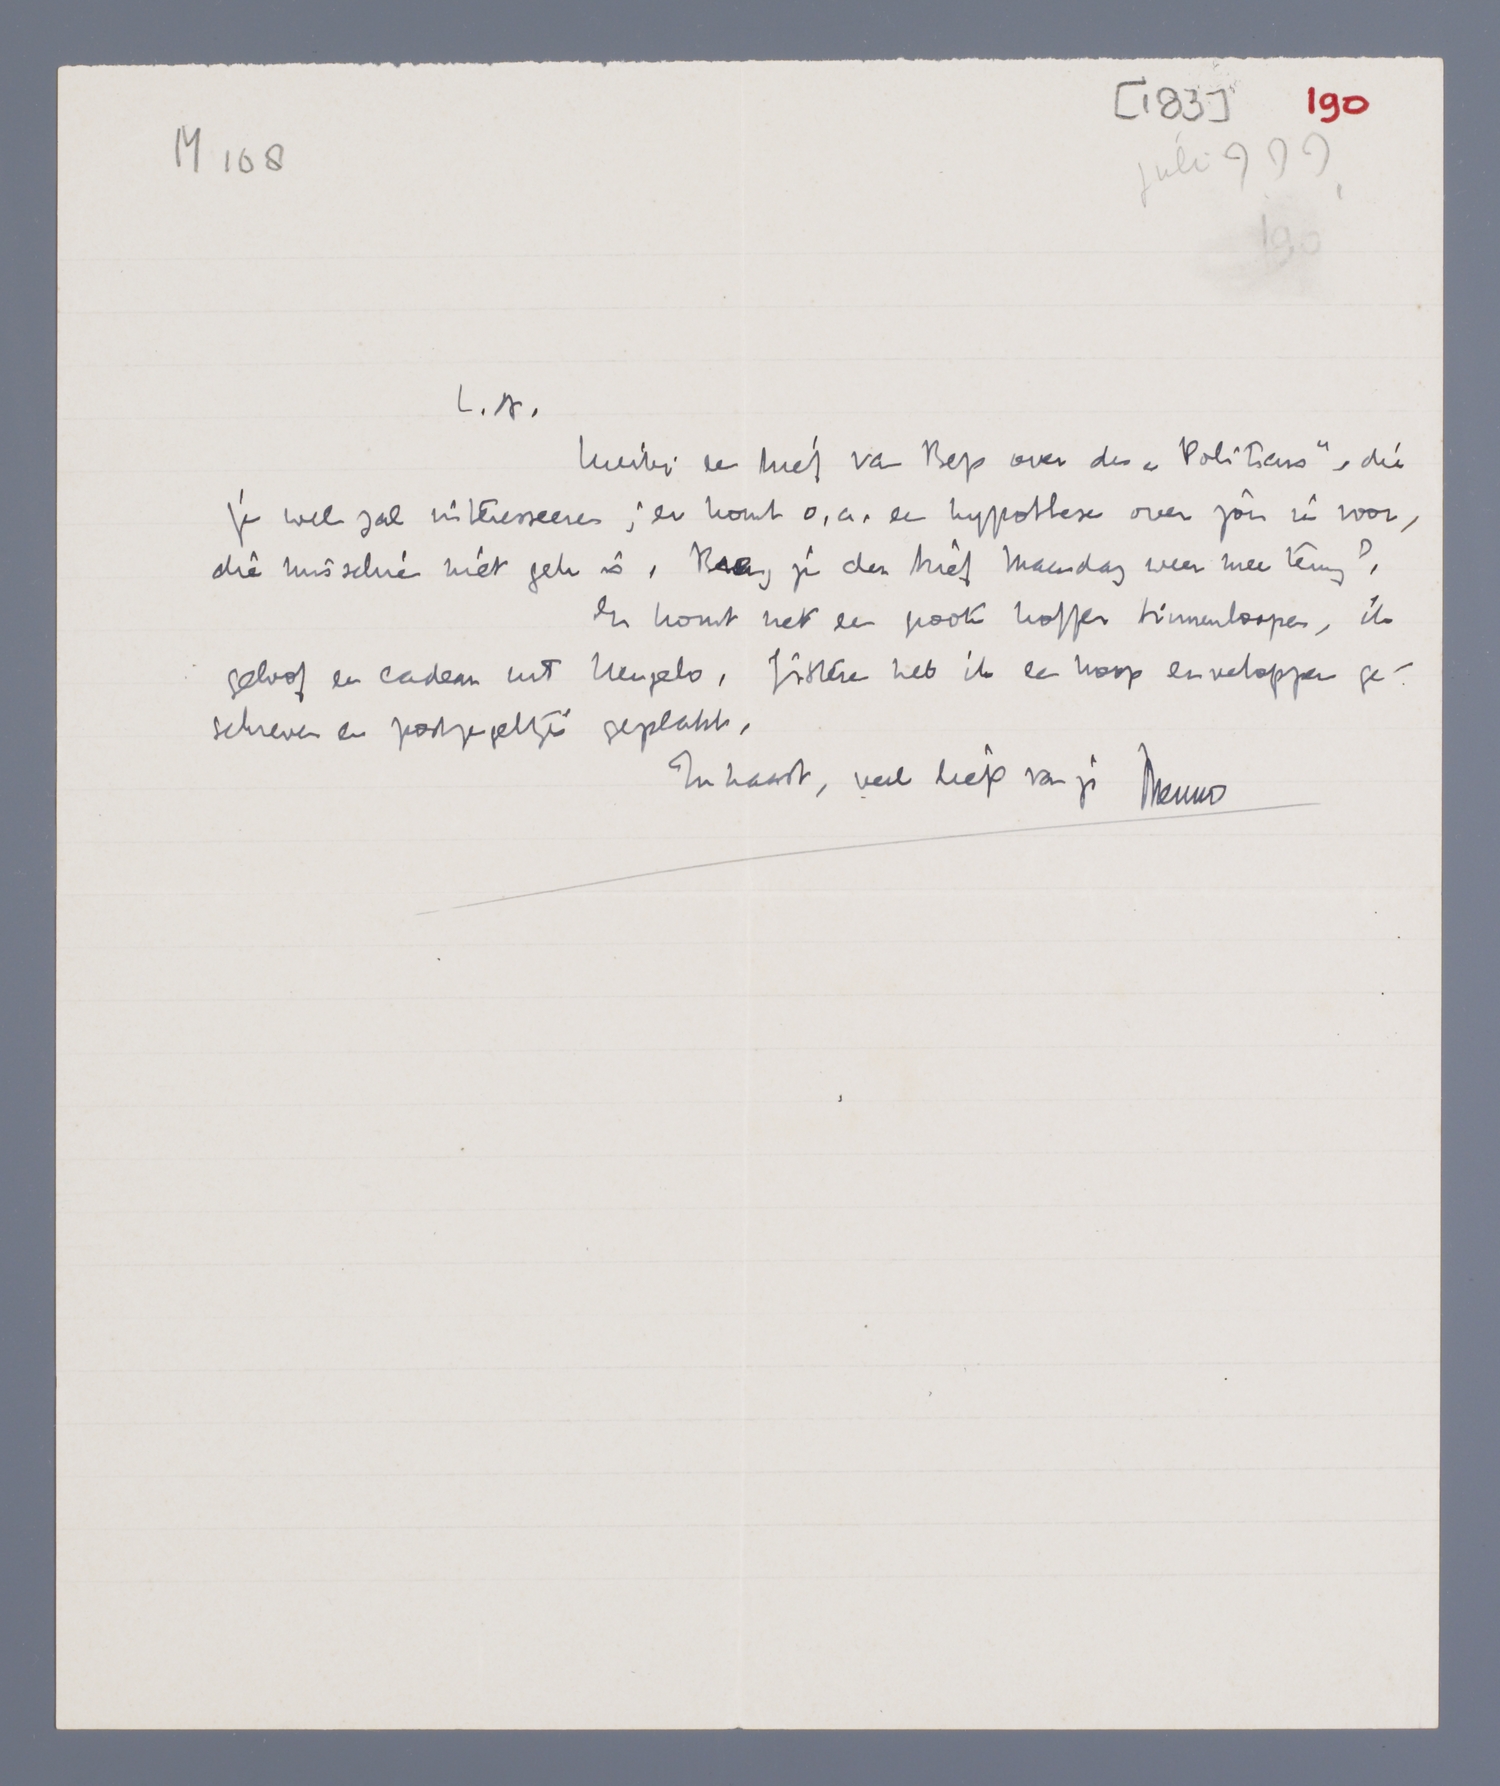 [183] 190
M 108
juli ???
190
L.A.
Hierbij een brief van Bep over den „Politicus", die
je wel zal interesseeren; er komt o.a. een hypothese over jou in voor,
die misschien niet gek is. Breng je den brief Maandag weer mee terug?
Er komt net een groote koffer binnenloopen, ik
geloof een cadeau uit Hengelo. Gisteren heb ik een hoop enveloppen ge-
schreven en postzegeltjes geplakt.
In haast, veel liefs van je Menno